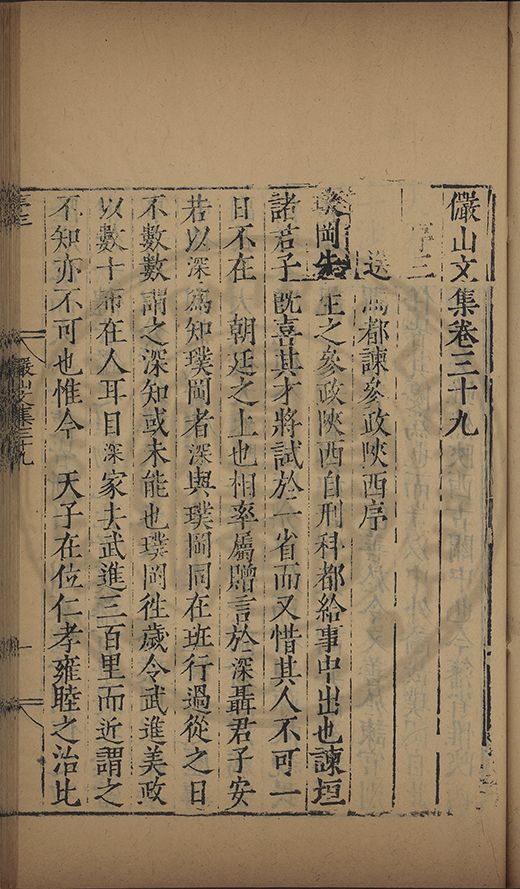 儼山文集卷三十九
序二
送馮都諫參政陝西序
璞岡先生之參政陝西自刑科都給事中出也諫垣
諸君子既喜其才將試於一省而又惜其人不可一
日不在 朝廷之上也相率屬贈言於深聶君子安
若以深為知璞岡者深與璞岡同在班行過從之日
不數數謂之深知或未能也璞岡徃歲令武進美政
以數十布在人耳目深家去武進三百里而近謂之
不知亦不可也惟今 天子在位仁孝雍睦之治比
儼山文集三九